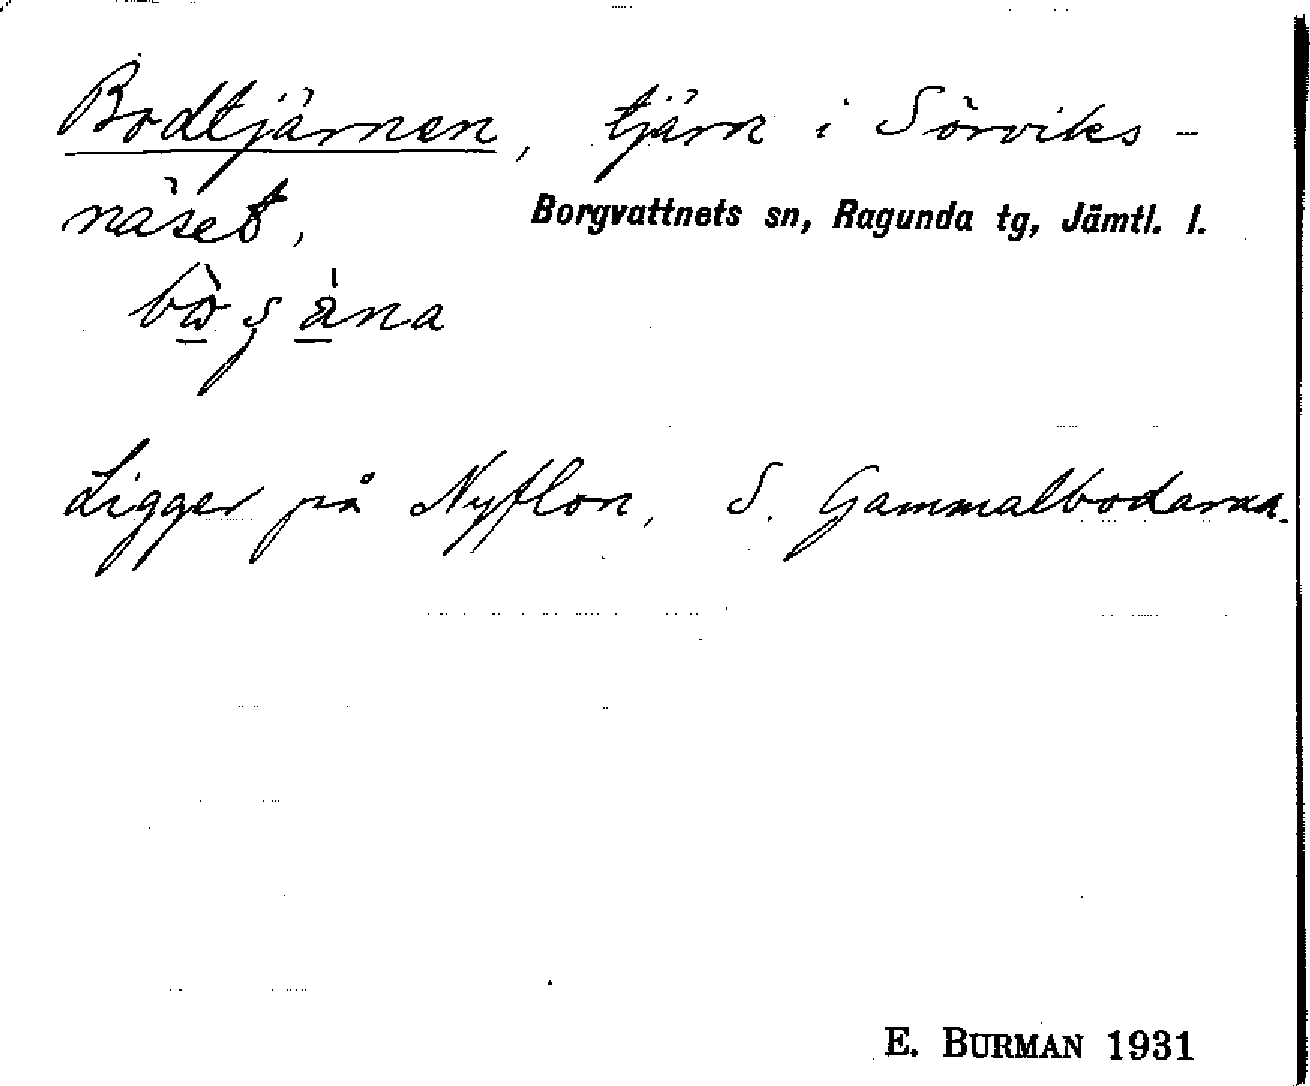 Bodtjärnen, tjärn i Sörviks-
näset,
Borgvattnets sn, Ragunda tg, Jämtl. l.
Ligger på Nyflon, S. Gammalbodarna.
E. BURMAN 1931